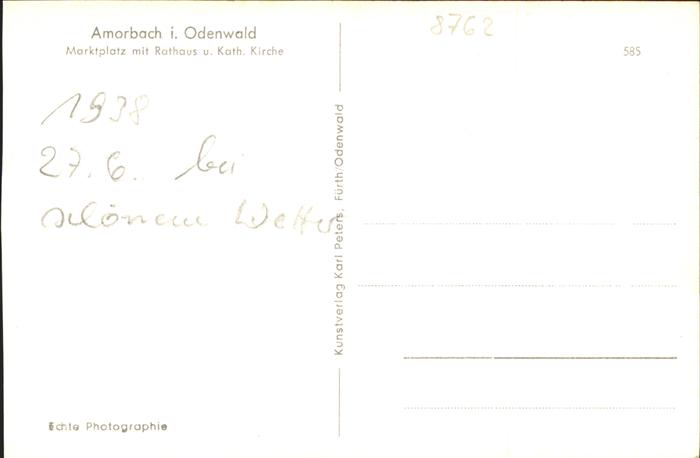 Amorbach i. Odenwald
Marktplatz mit Rathaus u. Kath. Kirche
1938
27. 6. bei
schönem Wetter
Echte Photographie
Kunstverlag Karl Peters, Fürth/Odenwald
8762
585